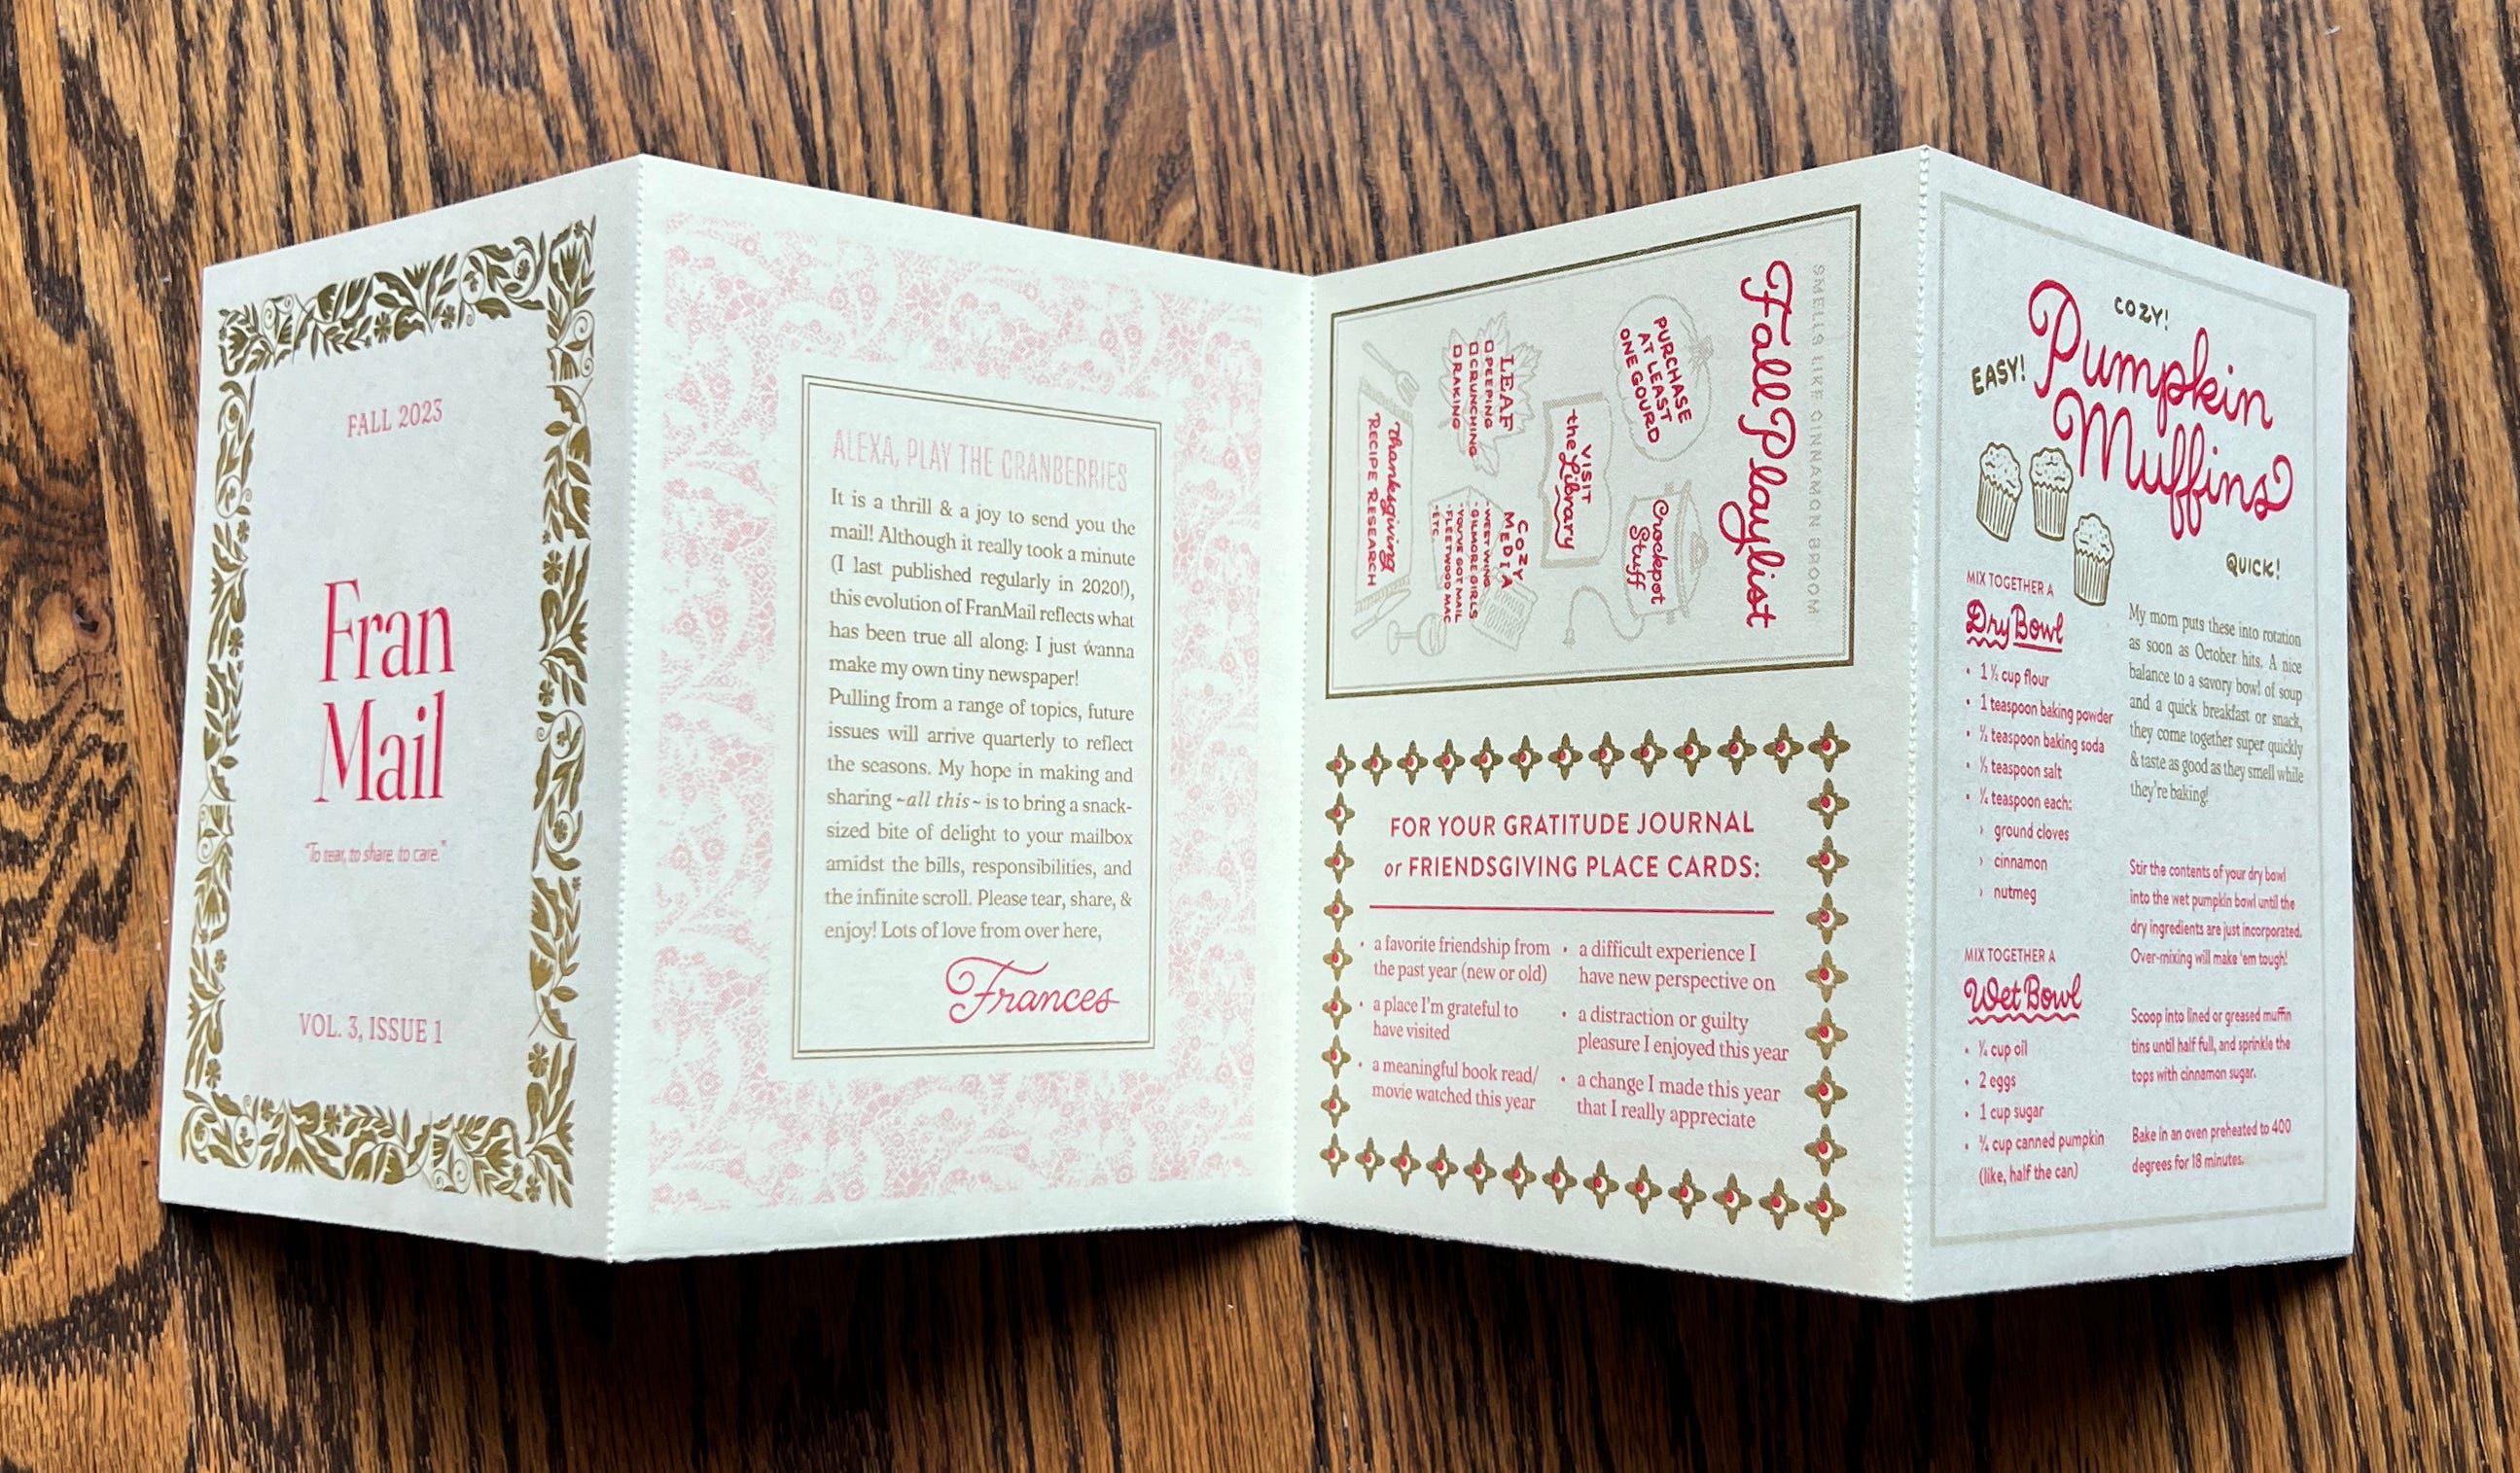 FALL 2023
Fran
Mail
"To tear, to share, to care."
VOL. 3, ISSUE 1
ALEXA, PLAY THE CRANBERRIES
It is a thrill & a joy to send you the
mail! Although it really took a minute
(I last published regularly in 2020!),
this evolution of FranMail reflects what
has been true all along: I just wanna
make my own tiny newspaper!
Pulling from a range of topics, future
issues will arrive quarterly to reflect
the seasons. My hope in making and
sharing ~all this~ is to bring a snack-
sized bite of delight to your mailbox
amidst the bills, responsibilities, and
the infinite scroll. Please tear, share, &
enjoy! Lots of love from over here,
Frances
SMELLS LIKE CINNAMON BROOM
Fall Playlist
PURCHASE
AT LEAST
ONE GOURD
Crockpot
Stuff
VISIT
the Library
LEAF
PEEPING
CRUNCHING
RAKING
COZY
MEDIA
• WEST WING
• GILMORE GIRLS
• YOU'VE GOT MAIL
• FLEETWOOD MAC
• ETC.
Thanksgiving
RECIPE RESEARCH
FOR YOUR GRATITUDE JOURNAL
or FRIENDSGIVING PLACE CARDS:
• a favorite friendship from
the past year (new or old)
• a place I'm grateful to
have visited
• a meaningful book read/
movie watched this year
• a difficult experience I
have new perspective on
• a distraction or guilty
pleasure I enjoyed this year
• a change I made this year
that I really appreciate
COZY!
EASY!
Pumpkin
Muffins
QUICK!
MIX TOGETHER A
Dry Bowl
• 1 ½ cup flour
• 1 teaspoon baking powder
• ½ teaspoon baking soda
• ½ teaspoon salt
• ¼ teaspoon each:
› ground cloves
› cinnamon
› nutmeg
MIX TOGETHER A
Wet Bowl
• ¼ cup oil
• 2 eggs
• 1 cup sugar
• ¾ cup canned pumpkin
(like, half the can)
My mom puts these into rotation
as soon as October hits. A nice
balance to a savory bowl of soup
and a quick breakfast or snack,
they come together super quickly
& taste as good as they smell while
they're baking!
Stir the contents of your dry bowl
into the wet pumpkin bowl until the
dry ingredients are just incorporated.
Over-mixing will make 'em tough!
Scoop into lined or greased muffin
tins until half full, and sprinkle the
tops with cinnamon sugar.
Bake in an oven preheated to 400
degrees for 18 minutes.